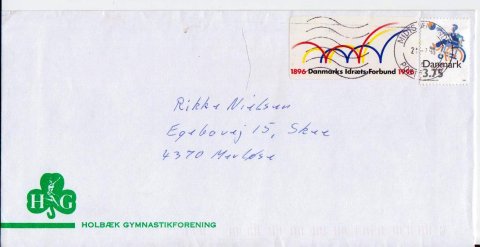 1896 Danmarks Idræts-Forbund 1996
Danmark
3.75
Rikke Nielsen
Egebovej 15, Skee
4370 Merløse
HG
HOLBÆK GYMNASTIKFORENING